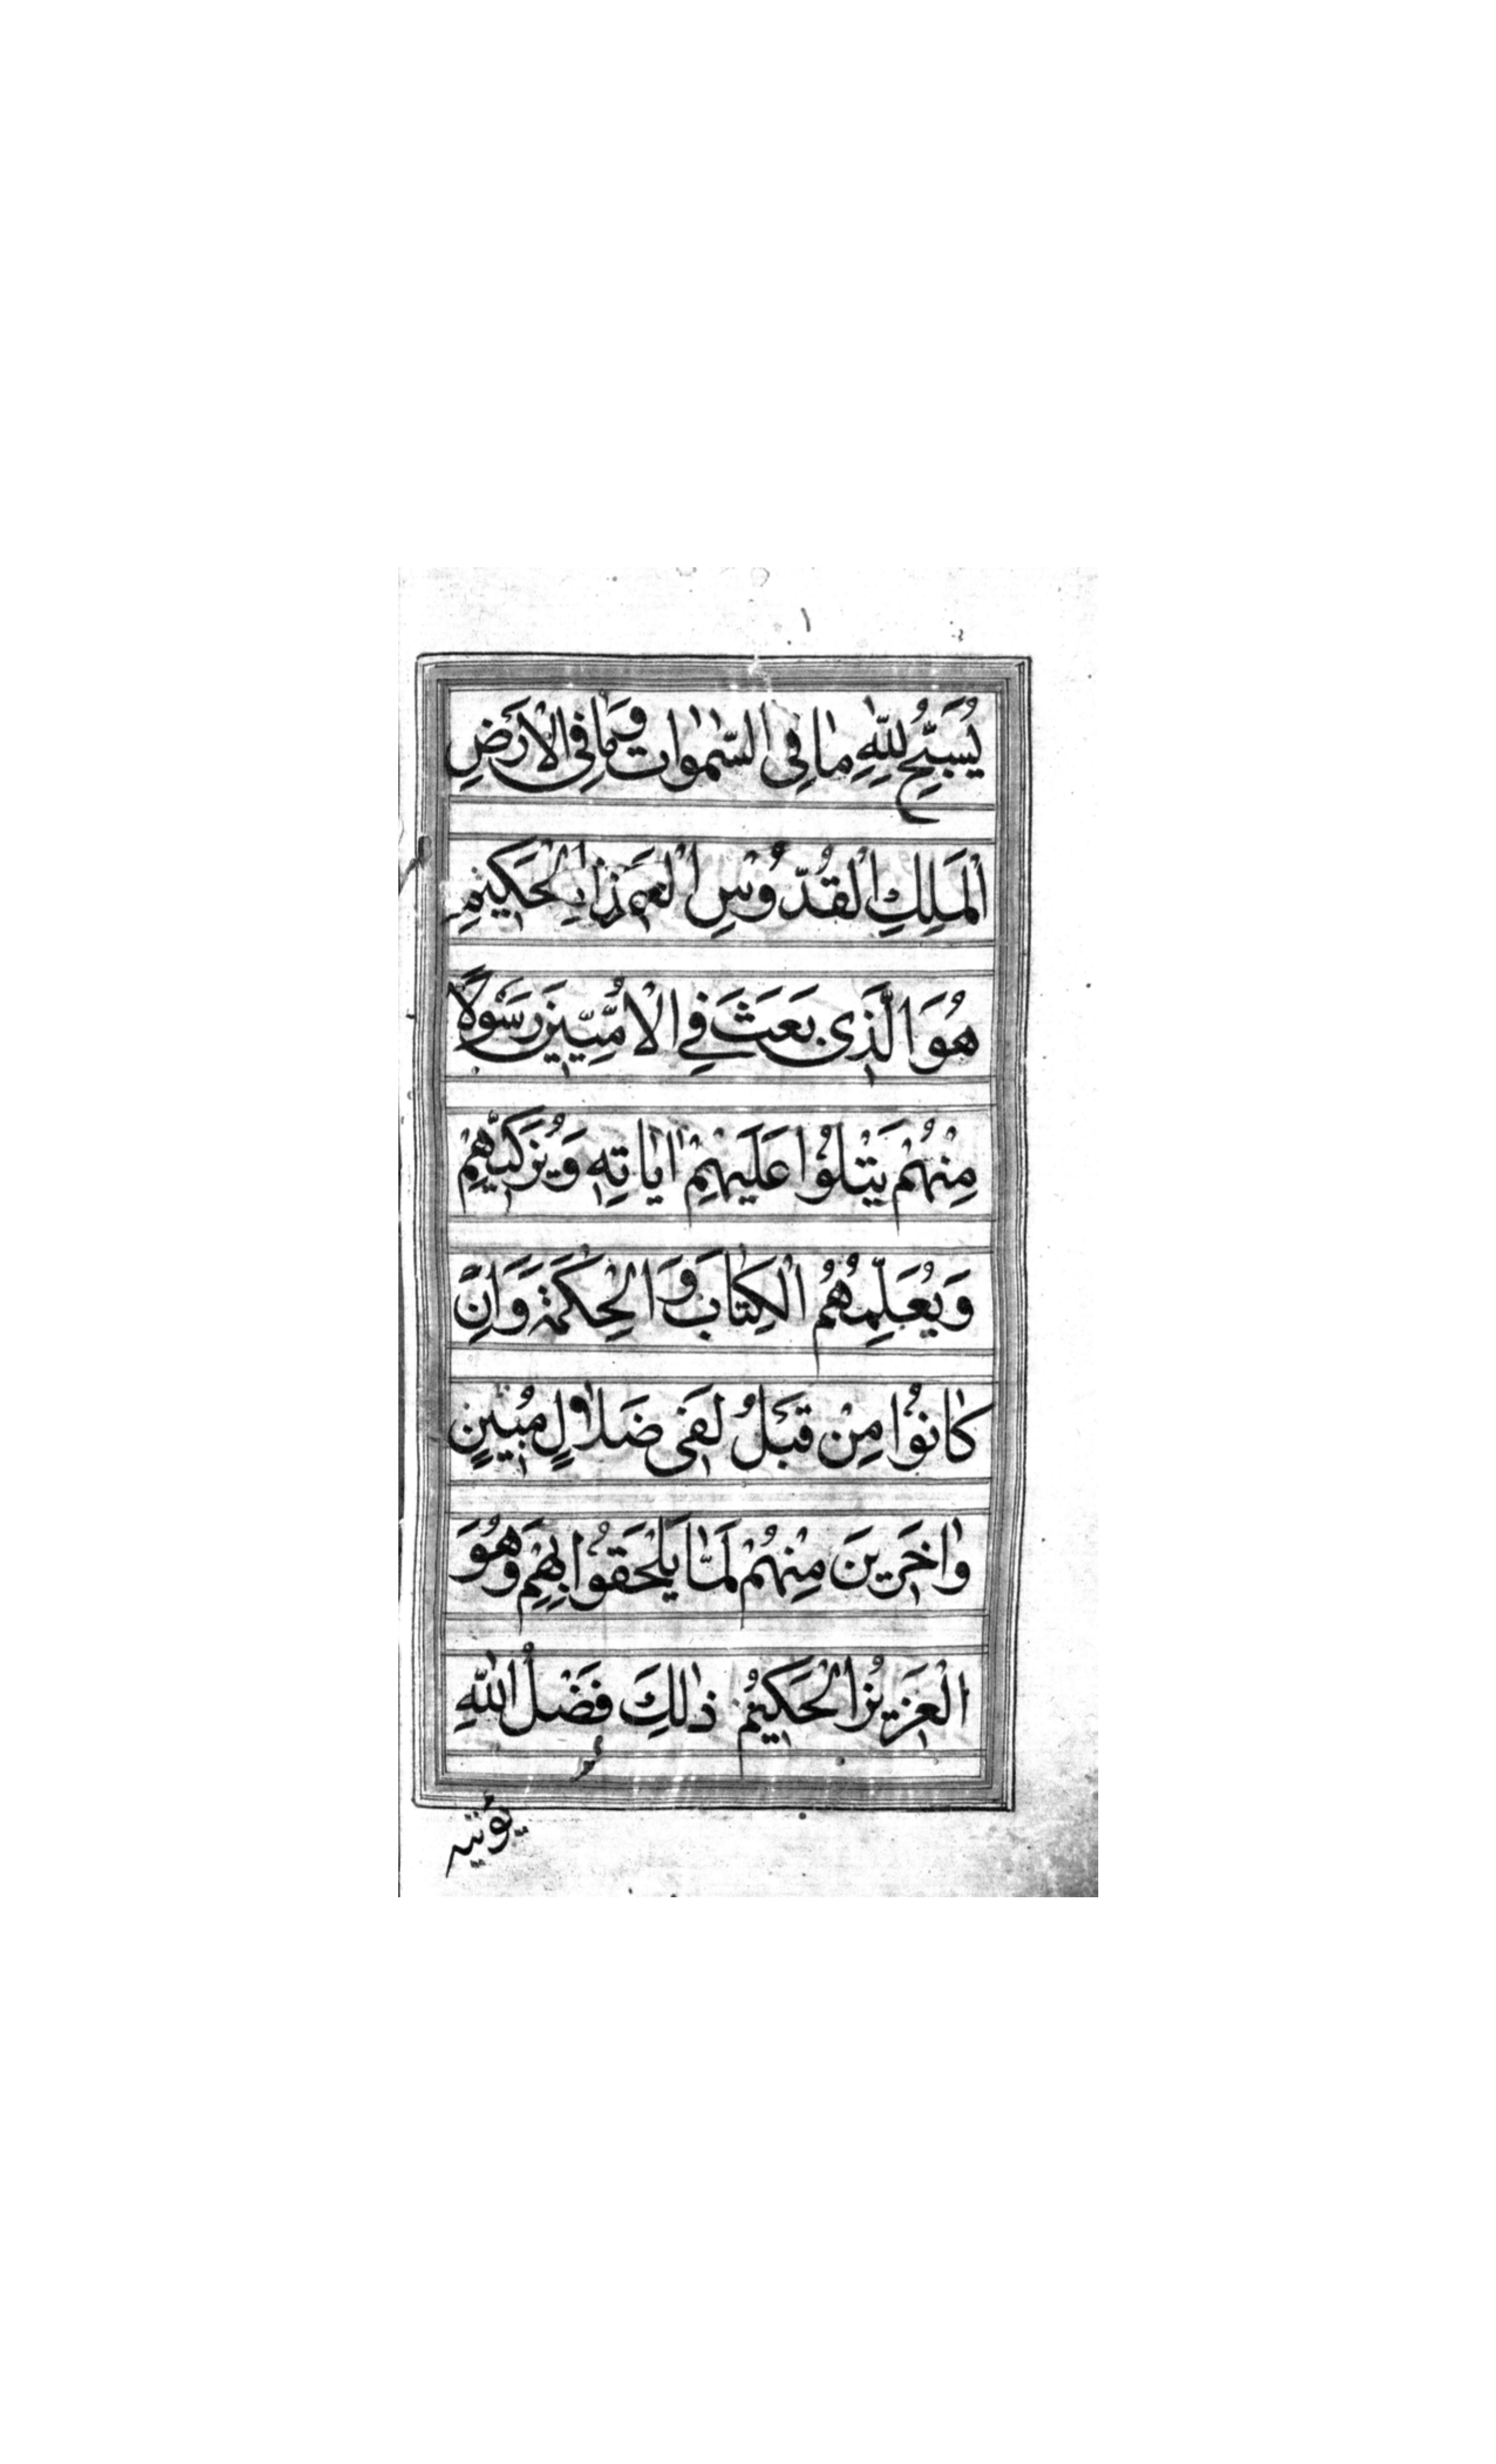 ١
يُسَبِّحُ لِلّٰهِ مٰا فِى السَّمٰوٰاتِ وَمٰا فِى الْاَرْضِ
الْمَلِكِ الْقُدُّوْسِ الْعَزِيْزِ الْحَكِيْمِ
هُوَ الَّذِى بَعَثَ فِى الْاُمِّيّٖنَ رَسُوْلًا
مِنْهُمْ يَتْلُوْا عَلَيْهِمْ اٰيٰاتِهٖ وَيُزَكّٖيهِمْ
وَيُعَلِّمُهُمُ الْكِتٰابَ وَالْحِكْمَةَ وَاِنْ
كٰانُوْا مِنْ قَبْلُ لَفٖى ضَلٰالٍ مُبٖينٍ
وَاٰخَرٖينَ مِنْهُمْ لَمّٰا يَلْحَقُوْا بِهِمْ وَهُوَ
الْعَزٖيزُ الْحَكٖيمُ ذٰلِكَ فَضْلُ اللّٰهِ
يؤتيه